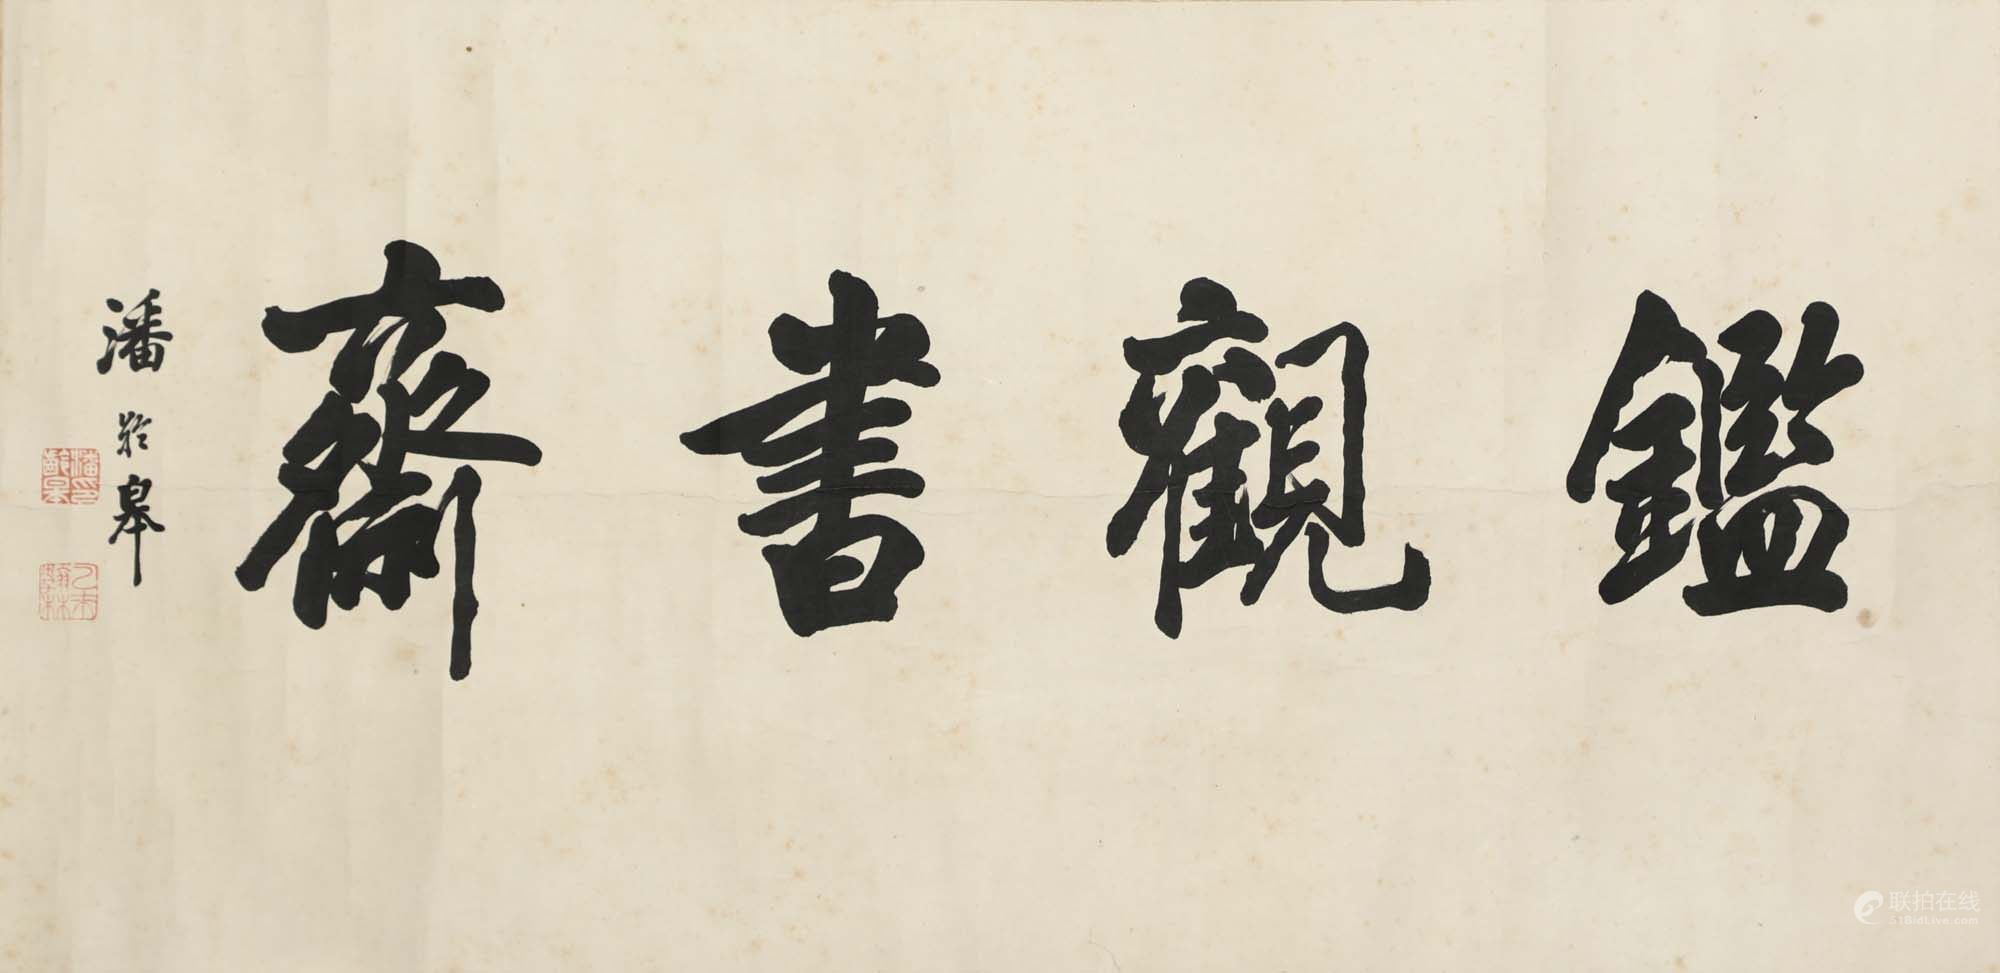 鑑觀書齋
潘齡皋
潘印齡皋
乙未翰林
联拍在线
51BidLive.com